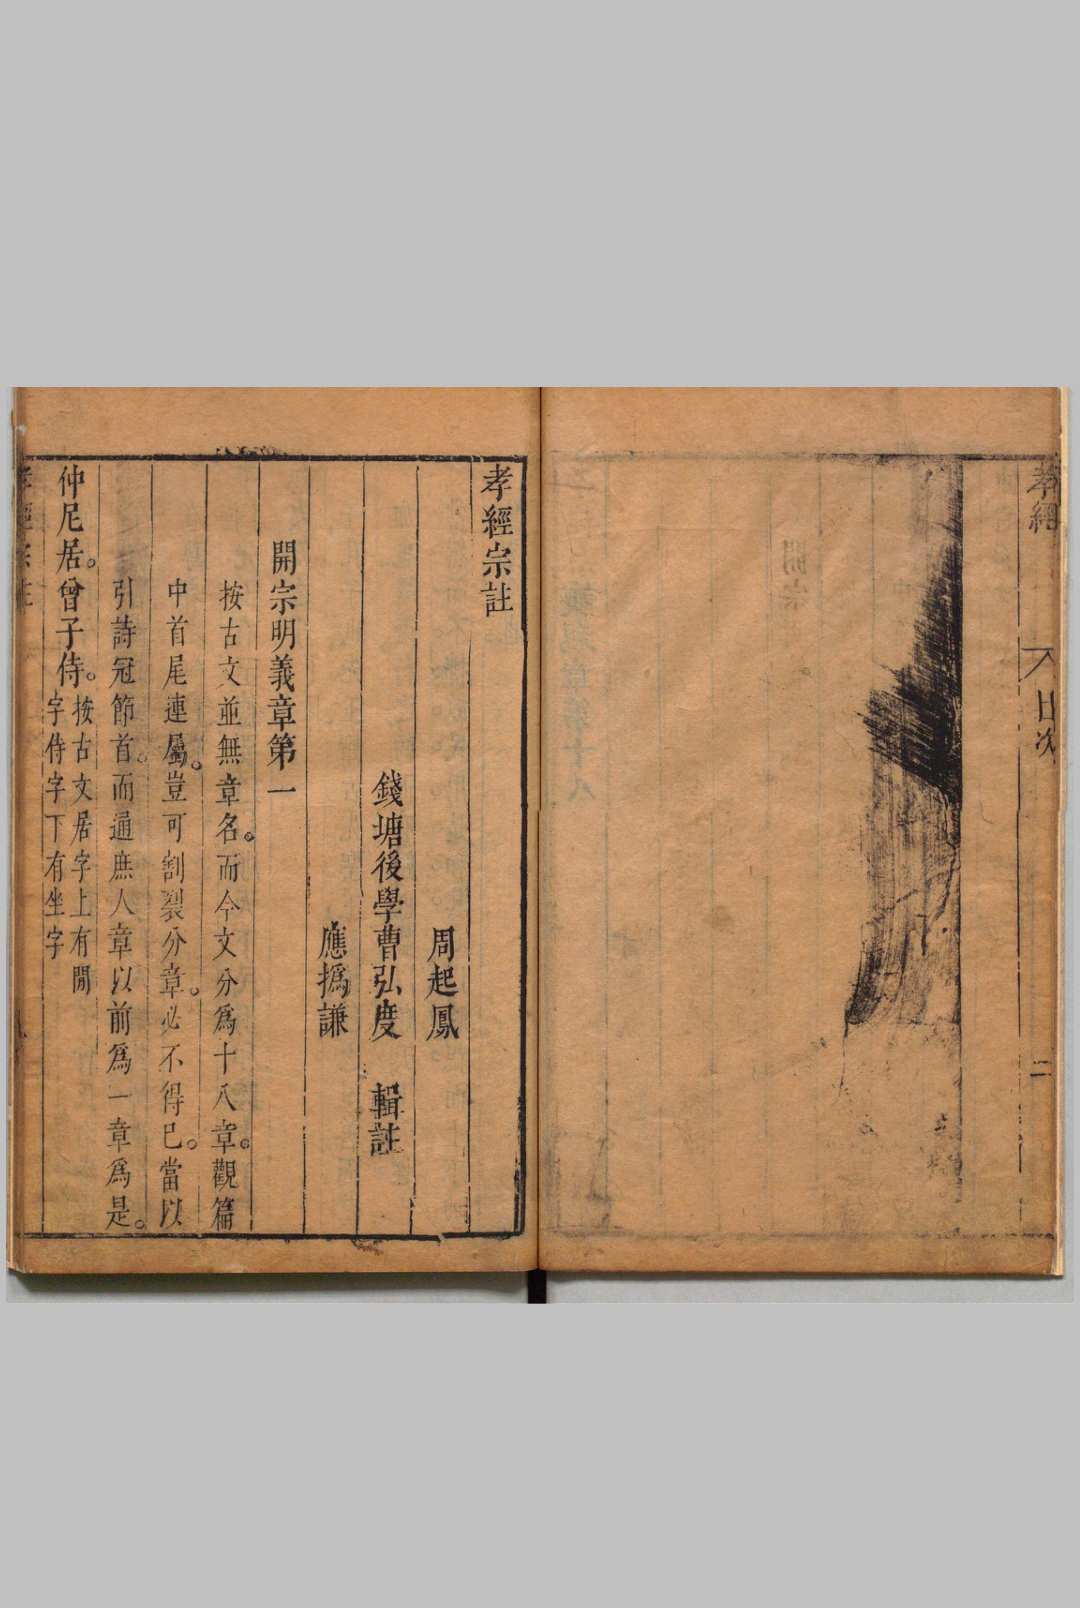 孝經
目次
二
孝經宗註
周起鳳
錢塘後學曹弘度 輯註
應撝謙
開宗明義章第一
按古文並無章名。而今文分爲十八章。觀篇
中首尾連屬。豈可割裂分章。必不得已。當以
引詩冠節首。而通庶人章以前爲一章爲是。
仲尼居。曾子侍。按古文居字上有閒
字侍字下有坐字